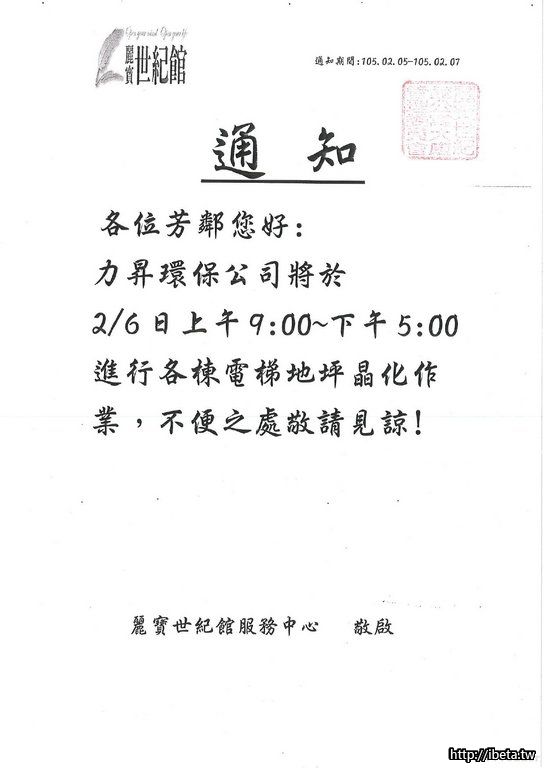 麗寶
世紀館
通知期間:105.02.05-105.02.07
通知
各位芳鄰您好:
力昇環保公司將於
2/6日上午9:00~下午5:00
進行各棟電梯地坪晶化作
業，不便之處敬請見諒!
麗寶世紀館服務中心 敬啟
http://ibeta.tw